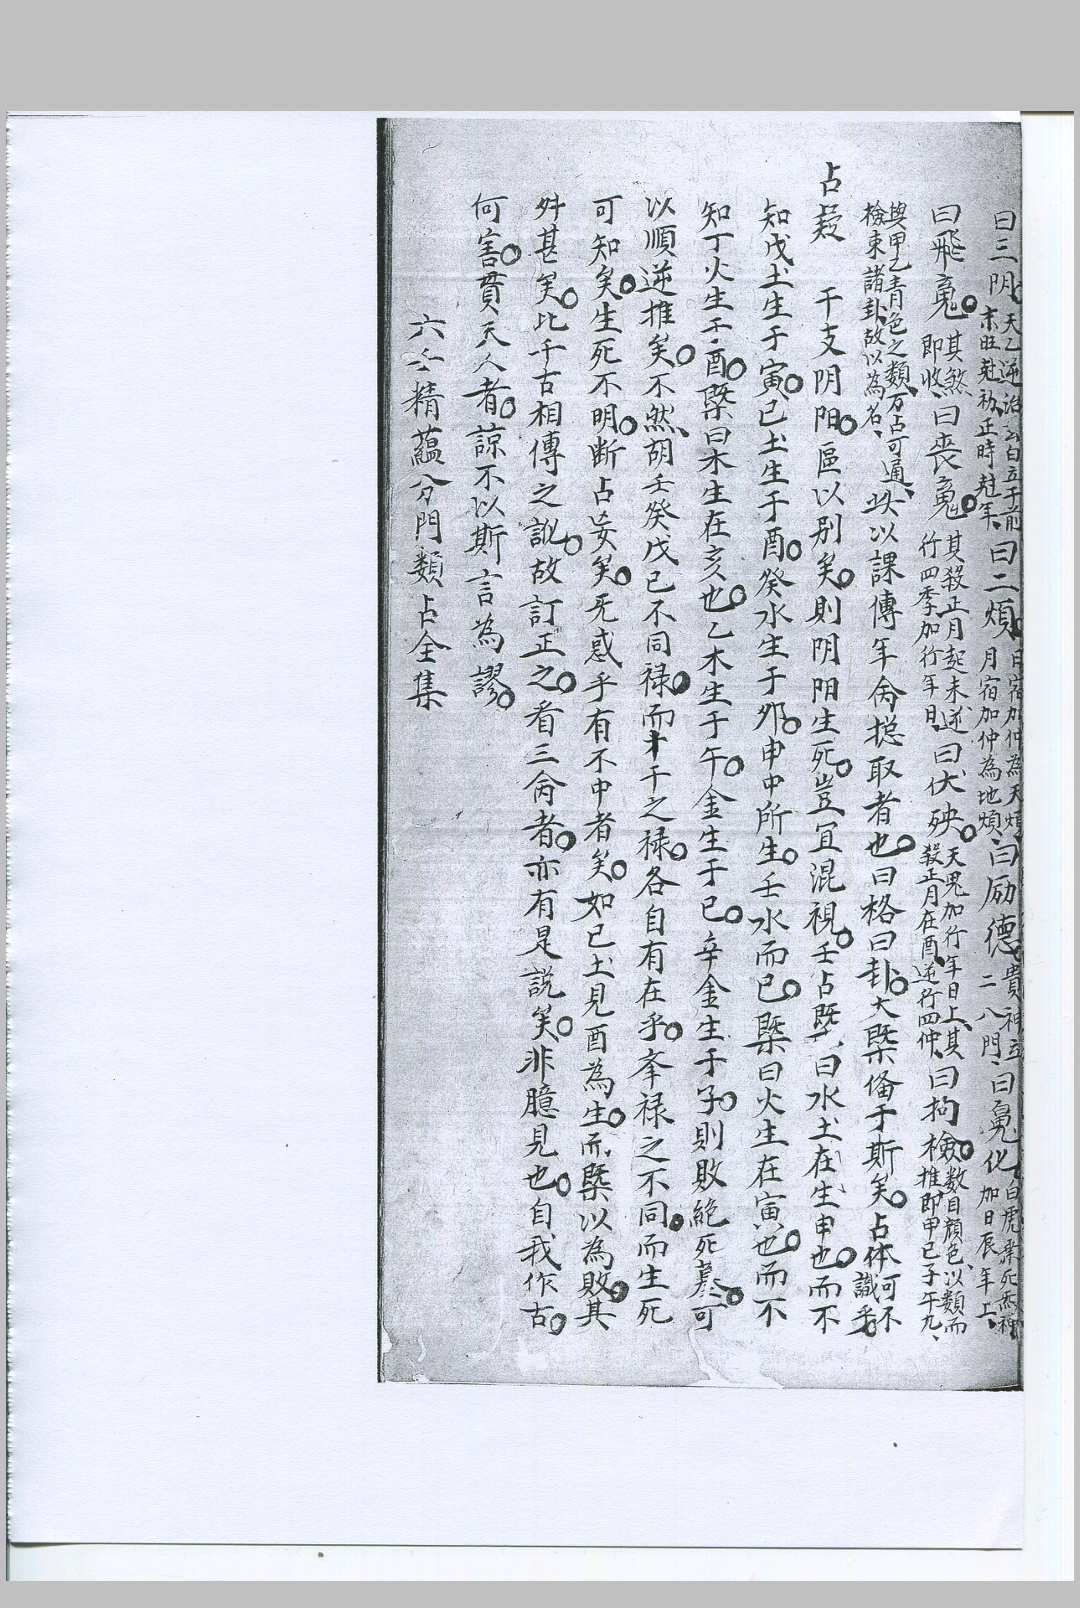 曰三阴天乙逆治玄白立于前末旺尅初正時尅年曰二煩日宿加仲為天煩月宿加仲為地煩曰励德貴神立二八門曰䰟化白虎乗死炁神加日辰年上
曰飛䰟其煞即收曰喪䰟其殺正月起未逆行四季加行年日曰伏殃天鬼加行年日上其殺正月在酉逆行四仲曰拘檢数目顔色以類而推即甲己子午九
與甲乙青色之類万占可通檢束諸卦故以為名此以課傳年命揔取者也曰格曰卦大槩俻于斯矣占体可不識乎
占疑　干支阴阳區以别矣則阴阳生死豈宜混視壬占既曰水土在生申也而不
知戊土生于寅己土生于酉癸水生于夘申中所生壬水而已槩曰火生在寅也而不
知丁火生于酉槩曰木生在亥也乙木生于午金生于巳辛金生于子則敗絶死墓可
以順逆推矣不然胡壬癸戊己不同禄而十干之禄各自有在乎夆禄之不同而生死
可知矣生死不明断占妄矣旡惑乎有不中者矣如己土見酉為生而槩以為敗其
舛甚矣比千古相傳之訛故訂正之看三命者亦有是説矣非臆見也自我作古
何害貫天人者諒不以斯言為謬
六壬精蘊分門類占全集